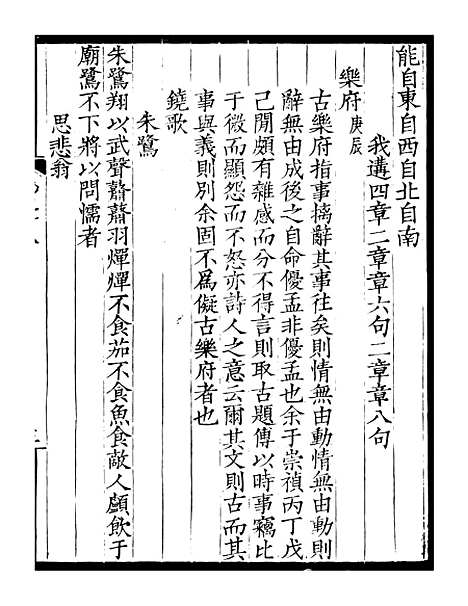 能自東自西自北自南
我遘四章二章章六句二章章八句
樂府庚辰
古樂府指事摛辭其事往矣則情無由動情無由動則
辭無由成後之自命優孟非優孟也余于崇禎丙丁戊
己閒頗有雜感而分不得言則取古題傅以時事竊比
于微而顯怨而不怒亦詩人之意云爾其文則古而其
事與義則別余固不爲儗古樂府者也
鐃歌
朱鷺
朱鷺翔以武聲翿翿羽燀燀不食茄不食魚食敵人顱飮于
廟鷺不下將以問懦者
思悲翁